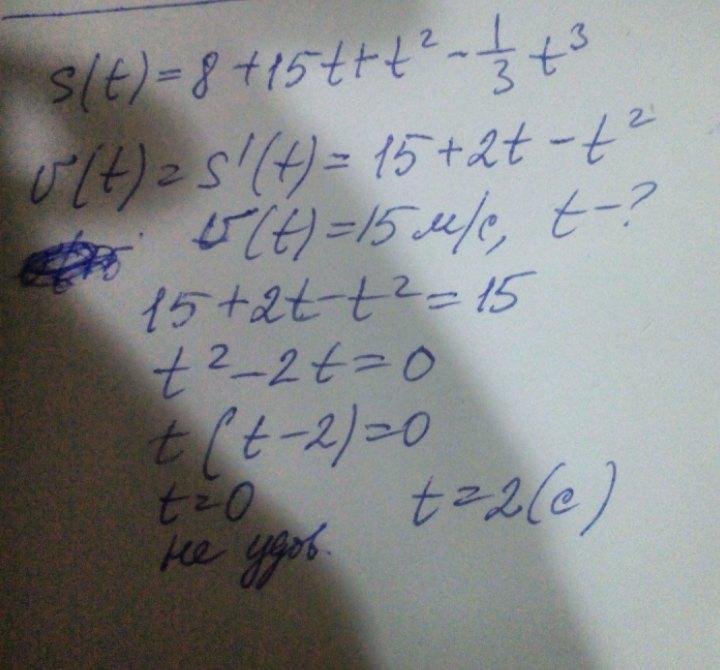 s(t)=8+15t+t²-1/3 t³
v(t)=s'(t)=15+2t-t²
v(t)=15м/с, t-?
15+2t-t²=15
t²-2t=0
t(t-2)=0
t=0 t=2(с)
не удов.